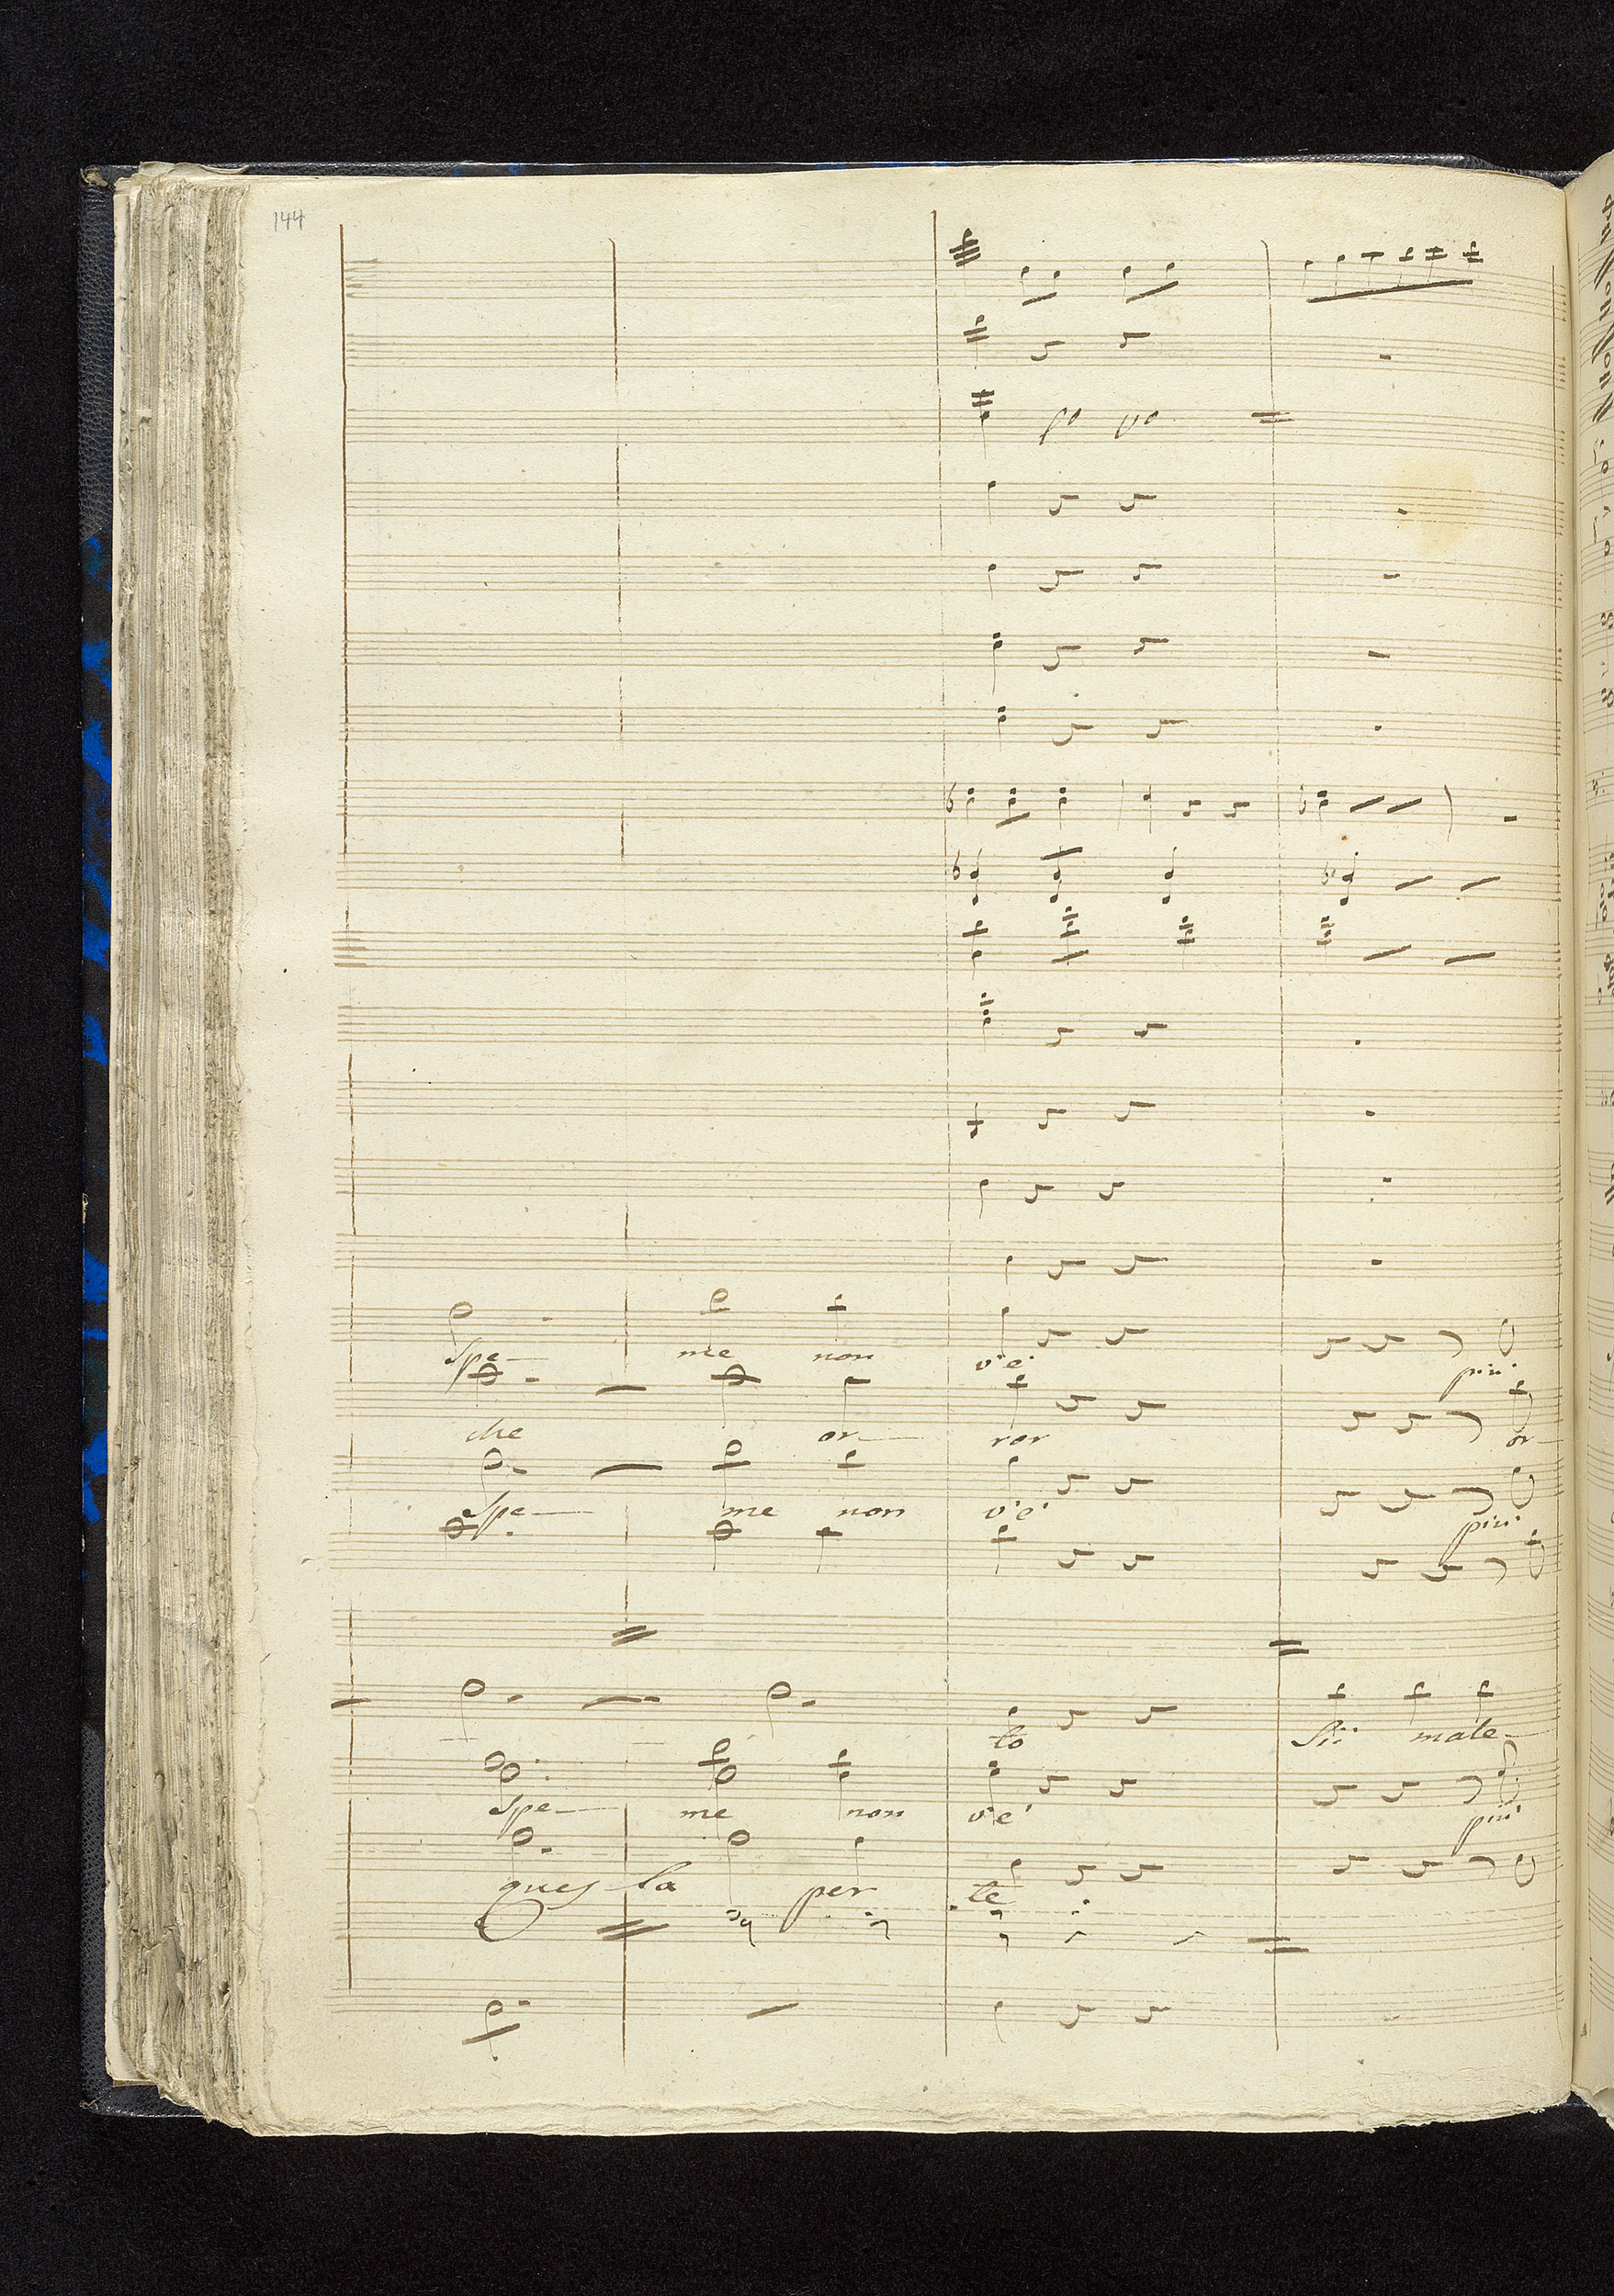 144
Spe- me non v'è più
che or- ror or-
Spe- me non v'è più
to Sii male-
Spe- me non v'è più
ques ta per te